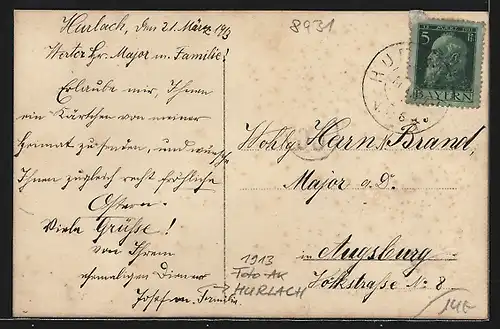 Hurlach, den 21. März 1913
Werter Hr. Major m. Familie!
Erlaube mir, Ihnen
ein Kärtchen von meiner
Heimat zu senden, und wünsche
Ihnen zugleich recht fröhliche
Ostern.
Viele Grüsse!
von Ihrem
ehemaligen Diener
Josef m. Familie
8931
5 Pf
BAYERN
HU
Wohlg. Herrn Brand,
Major a. D.
in Augsburg
Volkstraße No 8
1913
Foto-AK
HURLACH
14E